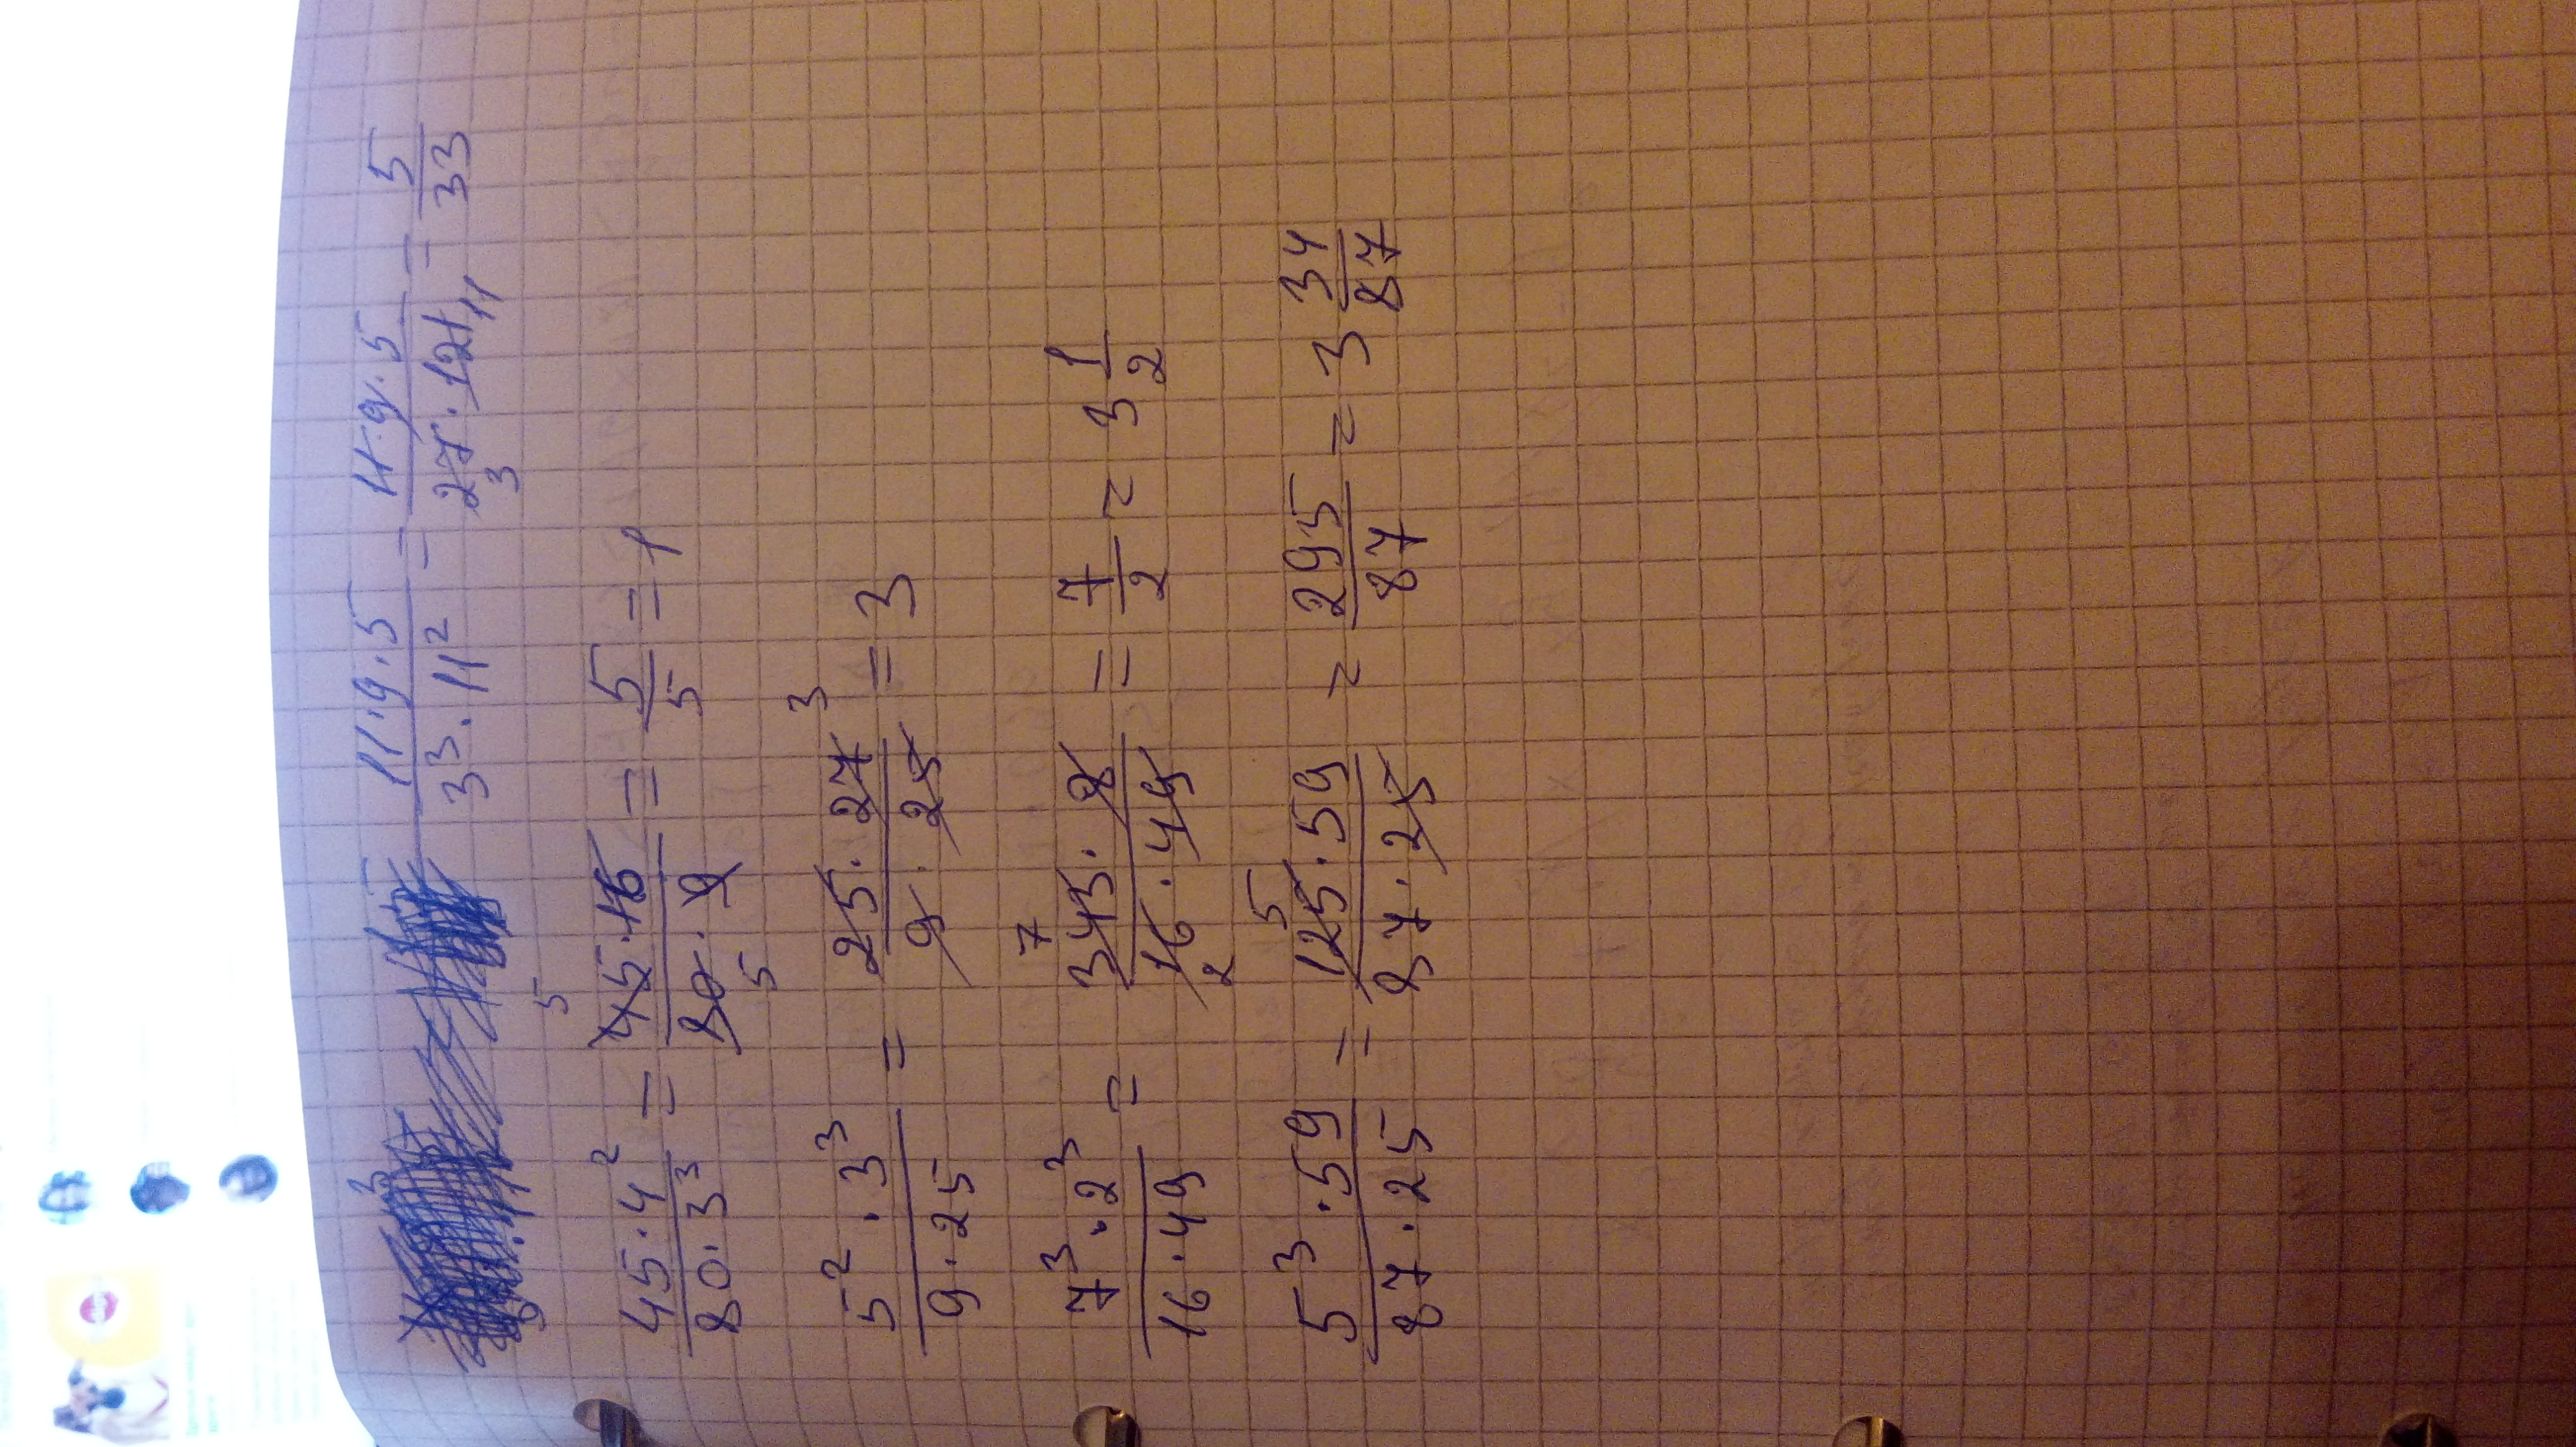 (11·9·5)/(3³·11²) = (11·9·5)/(27·121) = 5/33
3 11
(45·4²)/(80·3³) = (45·16)/(80·9) = 5/5 = 1
5 5
(5²·3³)/(9·25) = (25·27)/(9·25) = 3
3
(7³·2³)/(16·49) = (343·8)/(16·49) = 7/2 = 3 1/2
7 2
(5³·59)/(87·25) = (125·59)/(87·25) = 295/87 = 3 34/87
5